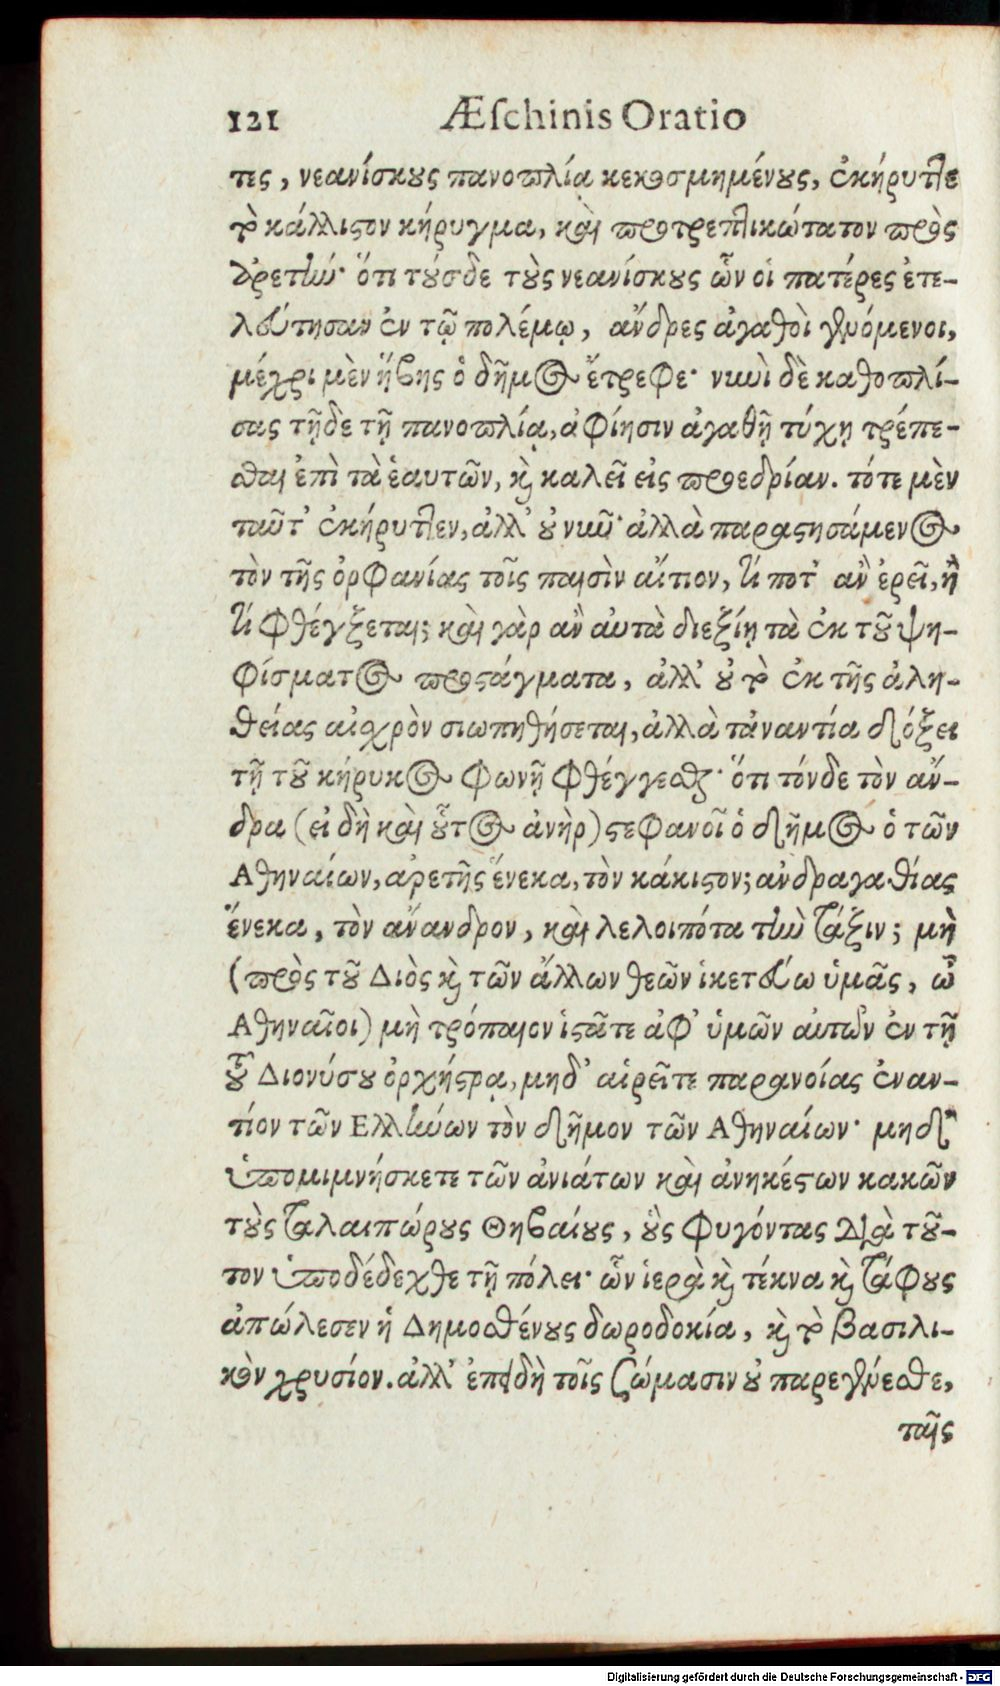 121 Æſchinis Oratio
τες, νεανίσκους πανοπλίᾳ κεκοσμημένους, ἐκήρυττε
τὸ κάλλιστον κήρυγμα, καὶ προτρεπτικώτατον πρὸς
ἀρετήν· ὅτι τούσδε τοὺς νεανίσκους ὧν οἱ πατέρες ἐτε-
λεύτησαν ἐν τῷ πολέμῳ, ἄνδρες ἀγαθοὶ γενόμενοι,
μέχρι μὲν ἥβης ὁ δῆμος ἔτρεφε· νυνὶ δὲ καθοπλί-
σας τῇδε τῇ πανοπλίᾳ, ἀφίησιν ἀγαθῇ τύχῃ τρέπε-
σθαι ἐπὶ τὰ ἑαυτῶν, καὶ καλεῖ εἰς προεδρίαν. τότε μὲν
ταῦτ' ἐκήρυττεν, ἀλλ' οὐ νῦν· ἀλλὰ παραστησάμενος
τὸν τῆς ὀρφανίας τοῖς παισὶν αἴτιον, τί ποτ' ἂν ἐρεῖ, ἢ
τί φθέγξεται; καὶ γὰρ ἂν αὐτὰ διεξίῃ τὰ ἐκ τοῦ ψη-
φίσματος προστάγματα, ἀλλ' οὐ τὸ ἐκ τῆς ἀλη-
θείας αἰσχρὸν σιωπηθήσεται, ἀλλὰ τἀναντία δόξει
τῇ τοῦ κήρυκος φωνῇ φθέγγεσθαι· ὅτι τόνδε τὸν ἄν-
δρα (εἰ δὴ καὶ οὗτος ἀνὴρ) στεφανοῖ ὁ δῆμος ὁ τῶν
Αθηναίων, ἀρετῆς ἕνεκα, τὸν κάκιστον; ἀνδραγαθίας
ἕνεκα, τὸν ἄνανδρον, καὶ λελοιπότα τὴν τάξιν; μὴ
(πρὸς τοῦ Διὸς καὶ τῶν ἄλλων θεῶν ἱκετεύω ὑμᾶς, ὦ
Αθηναῖοι) μὴ τρόπαιον ἱστᾶτε ἀφ' ὑμῶν αὐτῶν ἐν τῇ
τοῦ Διονύσου ὀρχήστρᾳ, μηδ' αἱρεῖτε παρανοίας ἐναν-
τίον τῶν Ελλήνων τὸν δῆμον τῶν Αθηναίων· μηδ'
ὑπομιμνήσκετε τῶν ἀνιάτων καὶ ἀνηκέστων κακῶν
τοὺς ταλαιπώρους Θηβαίους, οὓς φυγόντας διὰ τοῦ-
τον ὑποδέδεχθε τῇ πόλει· ὧν ἱερὰ καὶ τέκνα καὶ τάφους
ἀπώλεσεν ἡ Δημοσθένους δωροδοκία, καὶ τὸ βασιλι-
κὸν χρυσίον. ἀλλ' ἐπειδὴ τοῖς σώμασιν οὐ παρεγένεσθε,
ταῖς
Digitalisierung gefördert durch die Deutsche Forschungsgemeinschaft - DFG